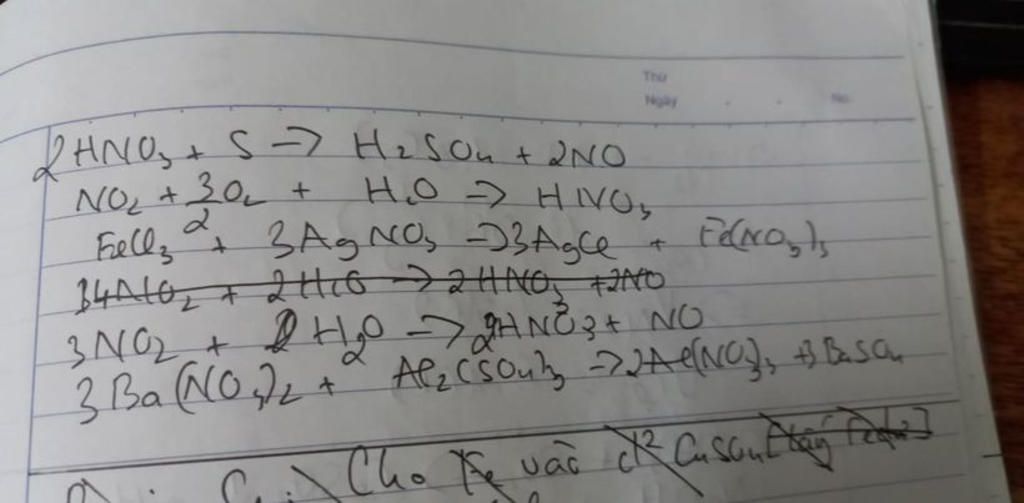 Thứ
Ngày No.
2HNO3 + S -> H2SO4 + 2NO
NO2 + 3/2 O2 + H2O => HNO3
FeCl3 + 3AgNO3 -> 3AgCl + Fe(NO3)3
3NO2 + H2O -> 2HNO3 + NO
3Ba(NO3)2 + Al2(SO4)3 -> 2Al(NO3)3 + 3BaSO4
Cho Fe vào d² CuSO4